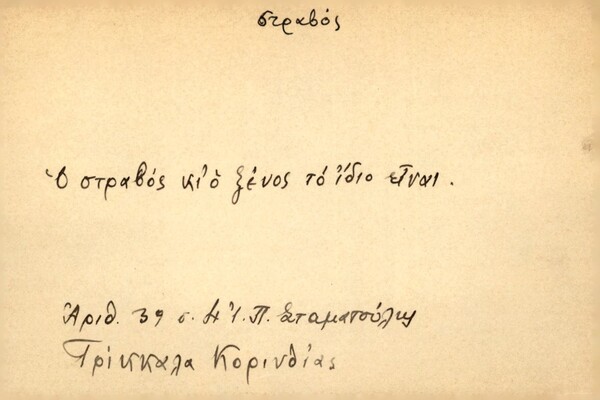 στραβός
Ὁ στραβός κι' ὁ ξένος τό ἴδιο εἶναι.
Ἀριθ. 39 σ. Π. Σταματούλης
Τρίκκαλα Κορινθίας